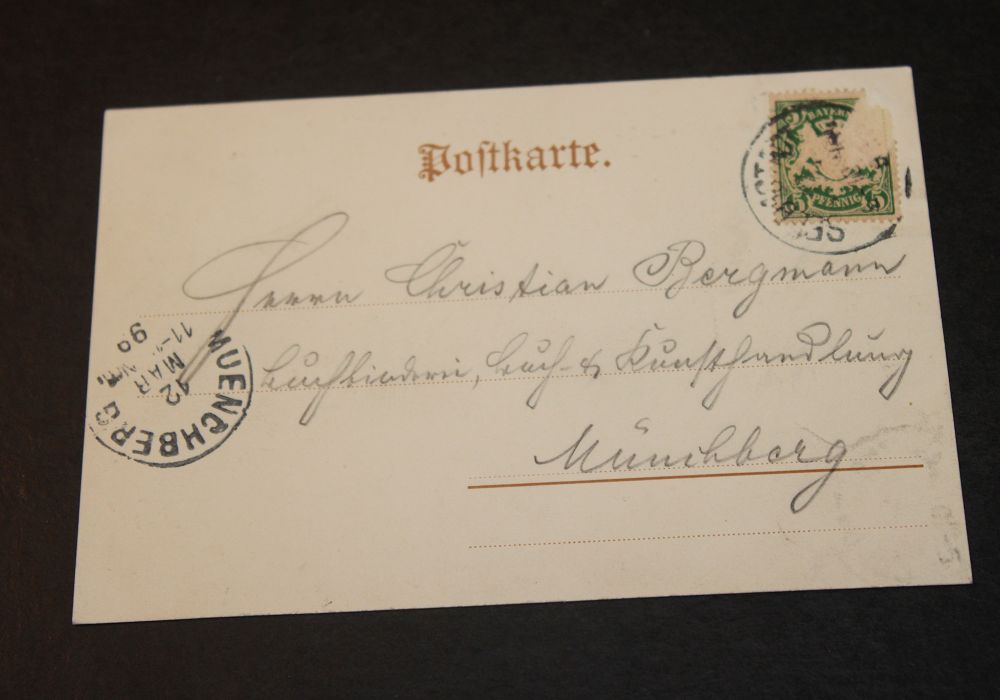 Postkarte.
BAYERN
5 PFENNIG 5
Herrn Christian Bergmann
Buchbinderei, Buch- & Kunsthandlung
Münchberg
MUENCHBERG
12
MAR
11-
99